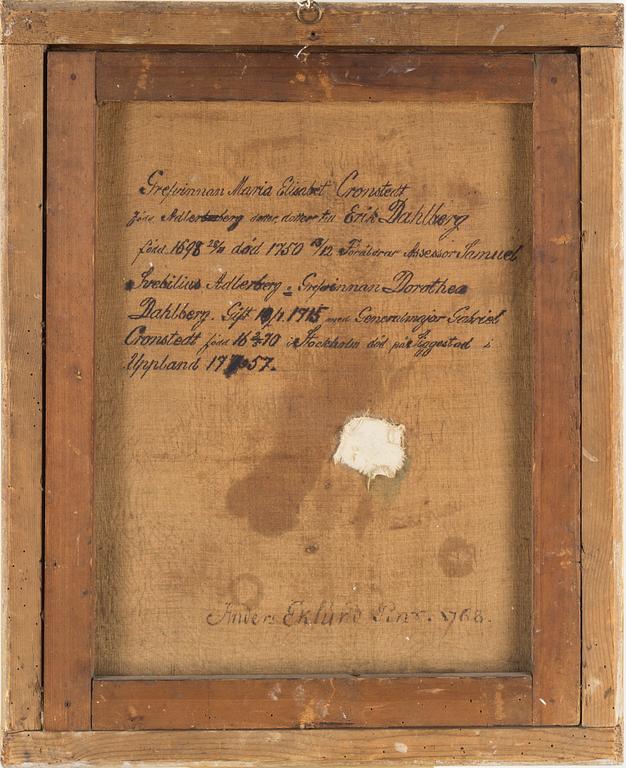 Grefvinnan Maria Elisabet Cronstedt
född Adlerberg dotter, dotter till Erik Dahlberg
född 1698 död 1750 13/12 Föräldrar Assessor Samuel
Svebilius Adlerberg o Grefvinnan Dorothea
Dahlberg. Gift 1715 med Generalmajor Gabriel
Cronstedt född 1670 i Stockholm död på Eggestad i
Uppland 1757.
Anders Eklund Pinx. 1768.